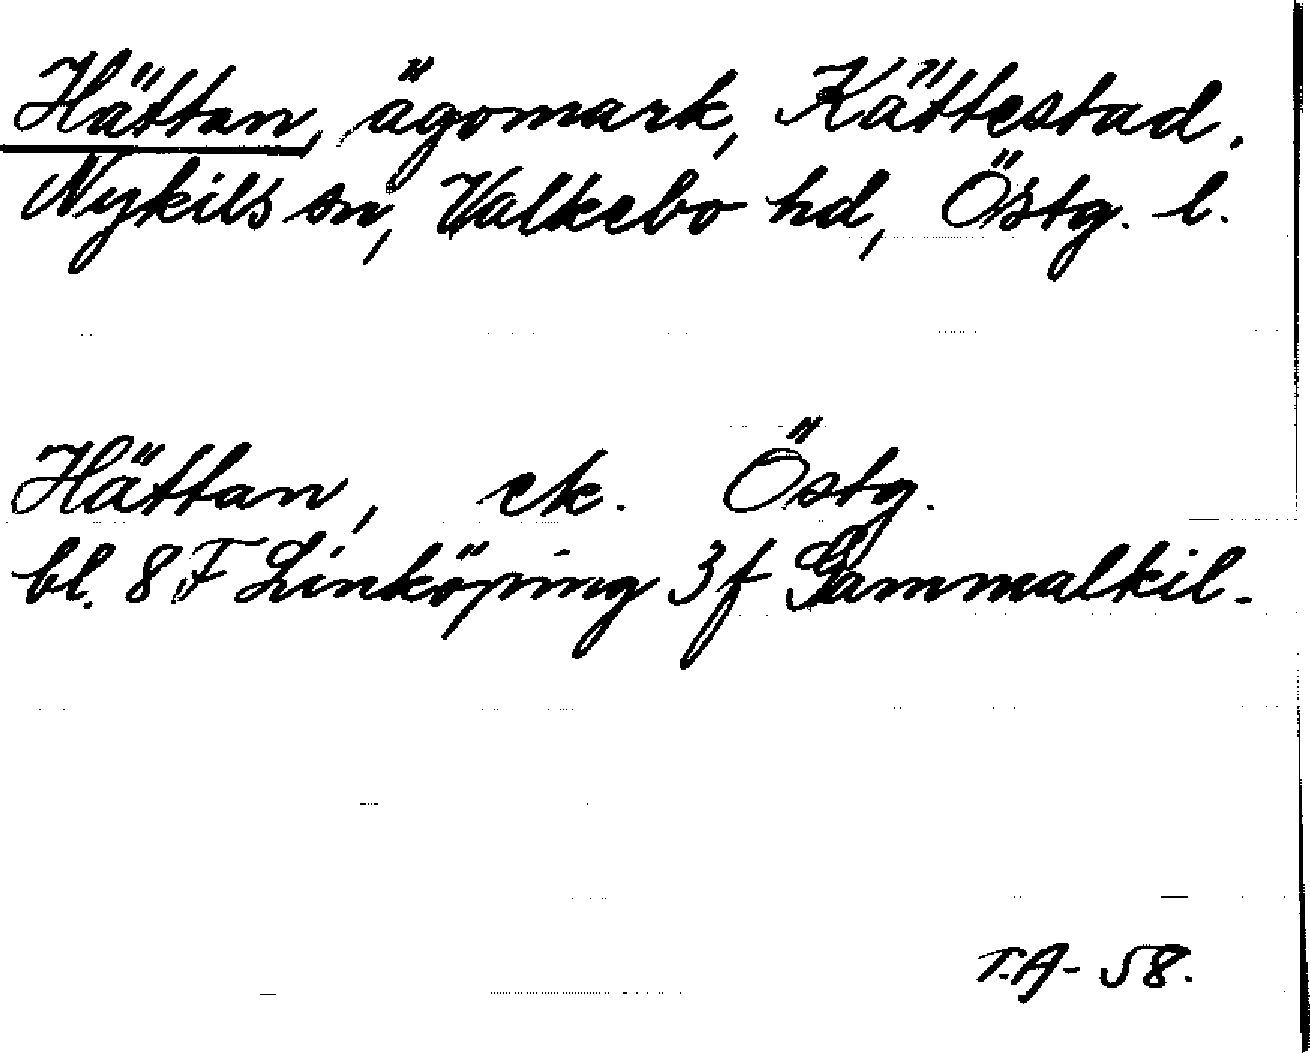 Hättan, ägomark, Kättestad.
Nykils sn, Valkebo hd, Östg. l.
Hättan, ek. Östg.
bl. 8 F Linköping 3f Gammalkil.
T.A- 58.